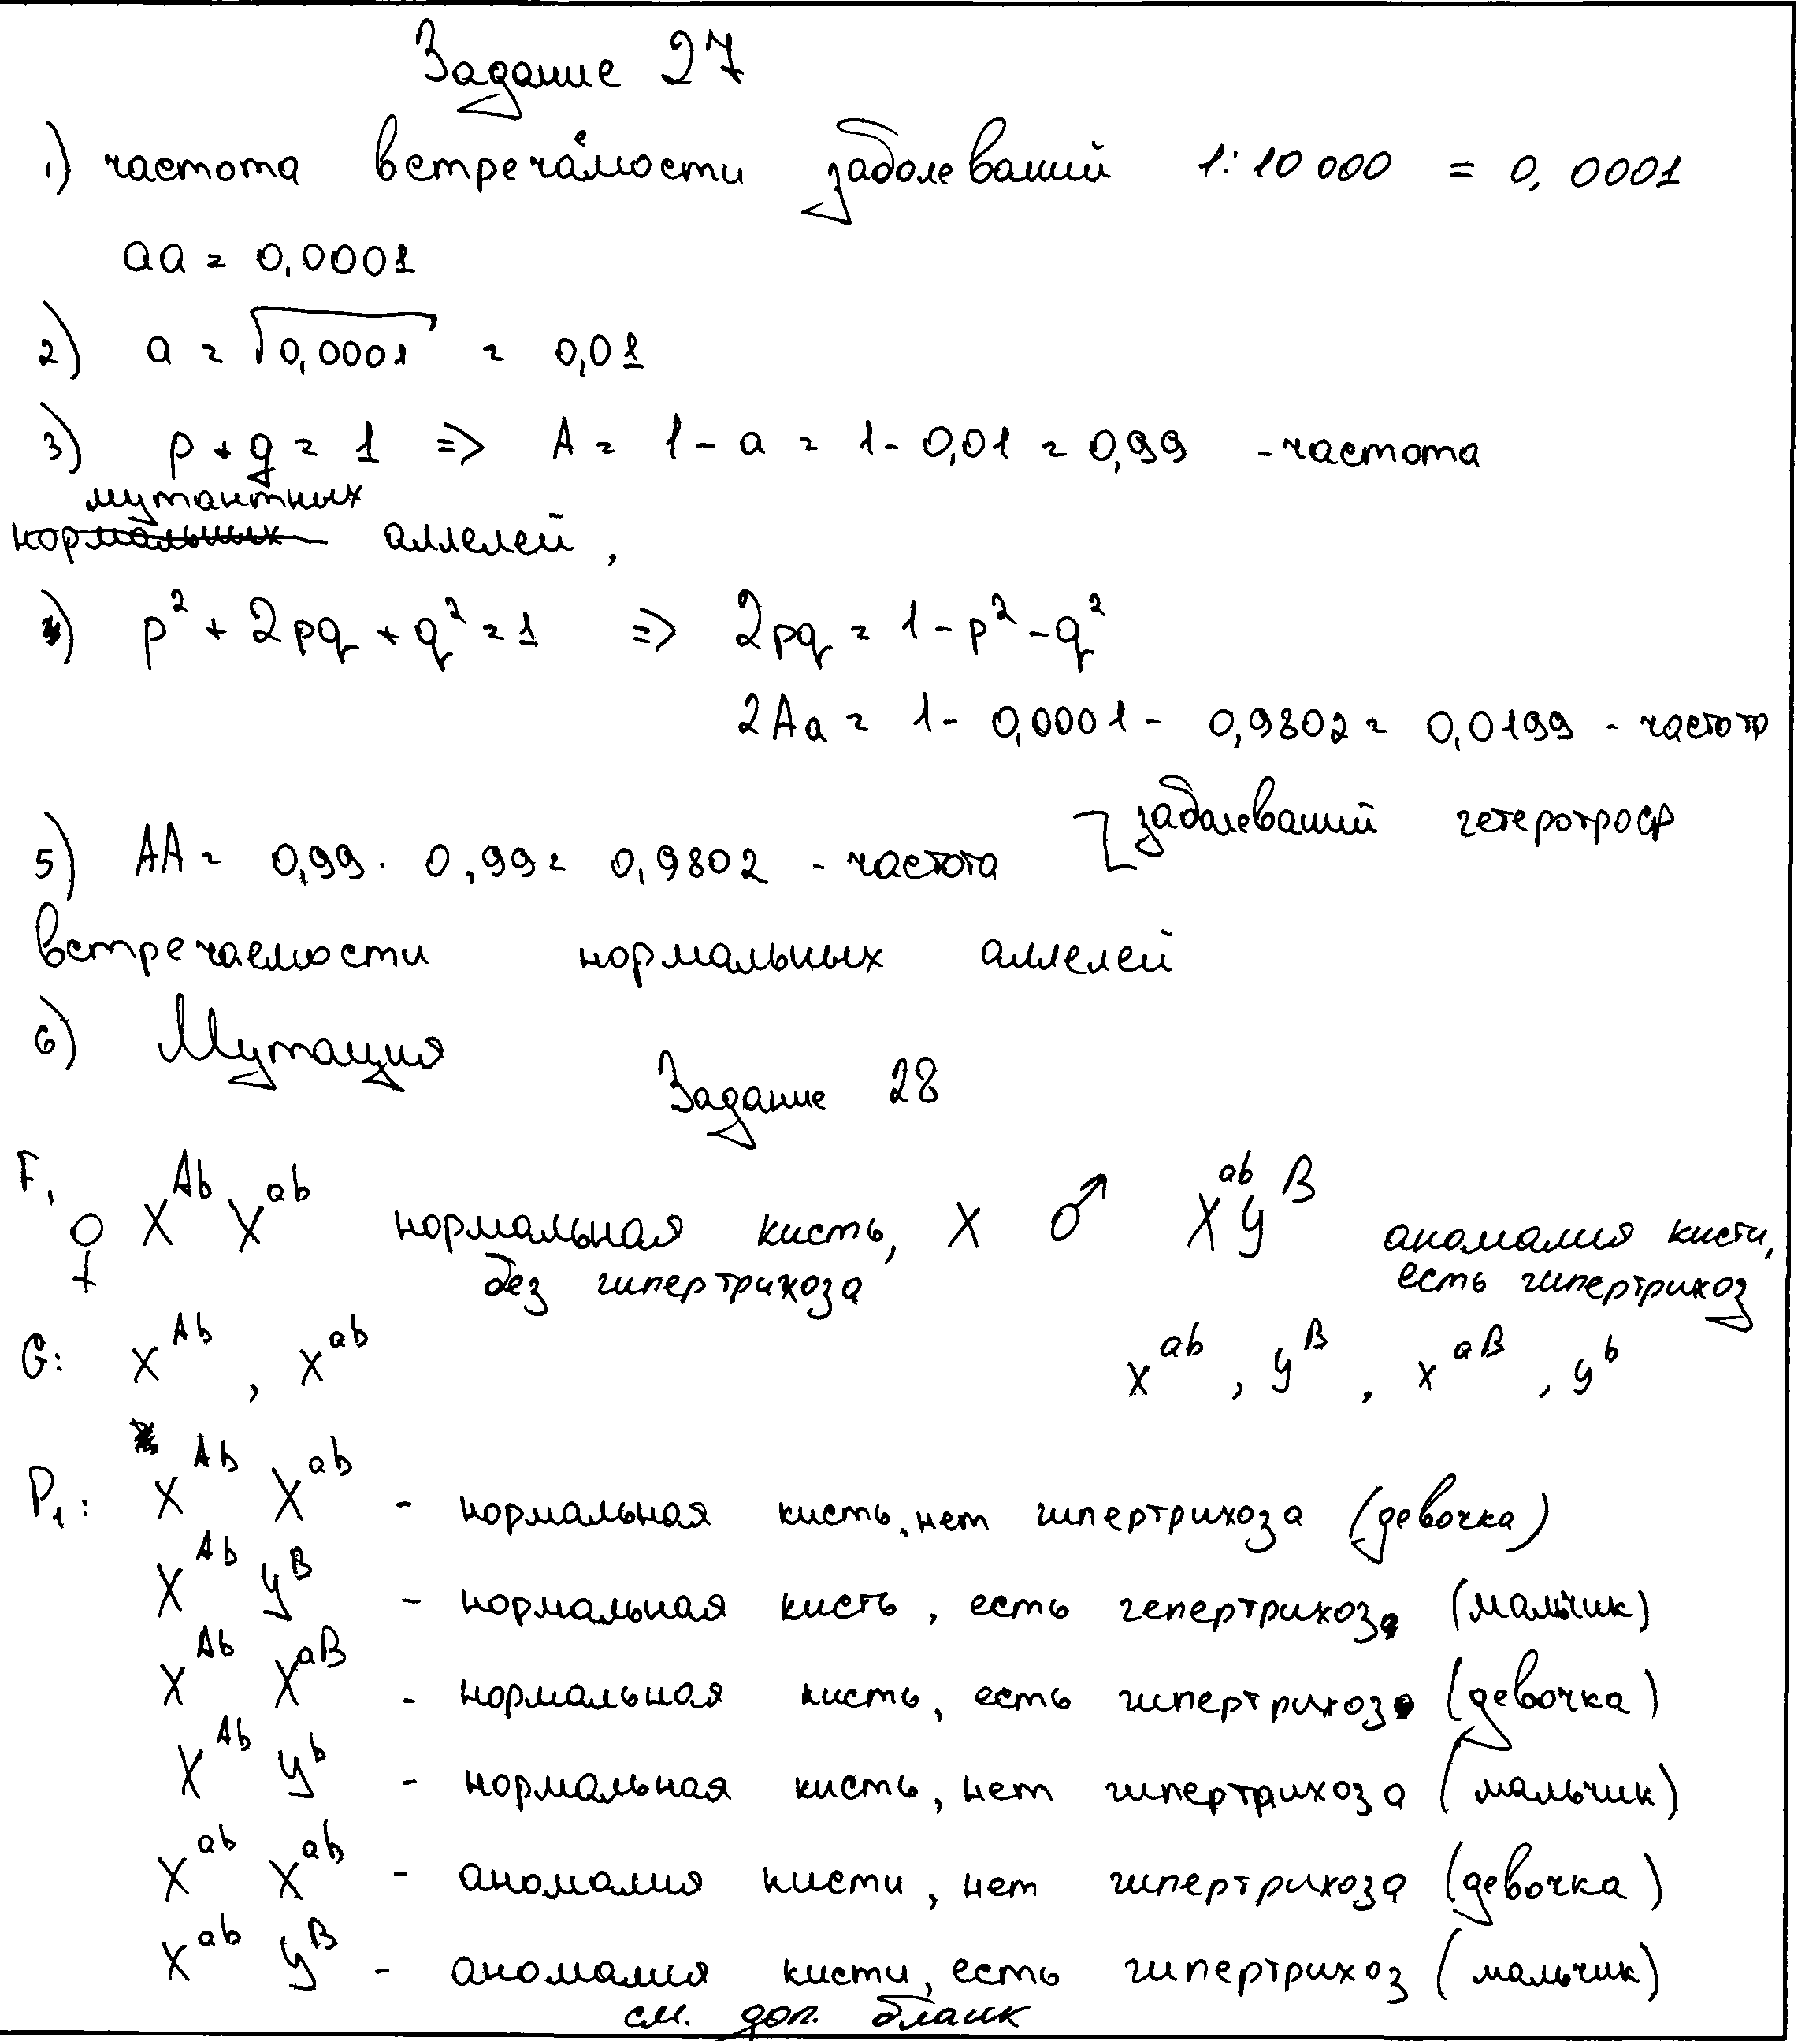 Задание 27
1) частота встречаемости заболеваний 1:10 000 = 0,0001
aa = 0,0001
2) a = √0,0001 = 0,01
3) p + q = 1 => A = 1 - a = 1 - 0,01 = 0,99 - частота
мутантных
нормальных аллелей,
4) p² + 2pq + q² = 1 => 2pq = 1 - p² - q²
2Aa = 1 - 0,0001 - 0,9802 = 0,0199 - частота
заболеваний гетеротроф
5) AA = 0,99 · 0,99 = 0,9802 - частота
встречаемости нормальных аллелей
6) Мутация
Задание 28
F₁ ♀ X^Ab X^ab нормальная кисть, без гипертрихоза X ♂ X^ab y^B аномалия кисти, есть гипертрихоз
G: X^Ab, X^ab X^ab, y^B, X^aB, y^b
P₁: X^Ab X^ab - нормальная кисть, нет гипертрихоза (девочка)
X^Ab y^B - нормальная кисть, есть гепертрихоз (мальчик)
X^Ab X^aB - нормальная кисть, есть гипертрихоз (девочка)
X^Ab y^b - нормальная кисть, нет гипертрихоза (мальчик)
X^ab X^ab - аномалия кисти, нет гипертрихоза (девочка)
X^ab y^B - аномалия кисти, есть гипертрихоз (мальчик)
см. доп. бланк